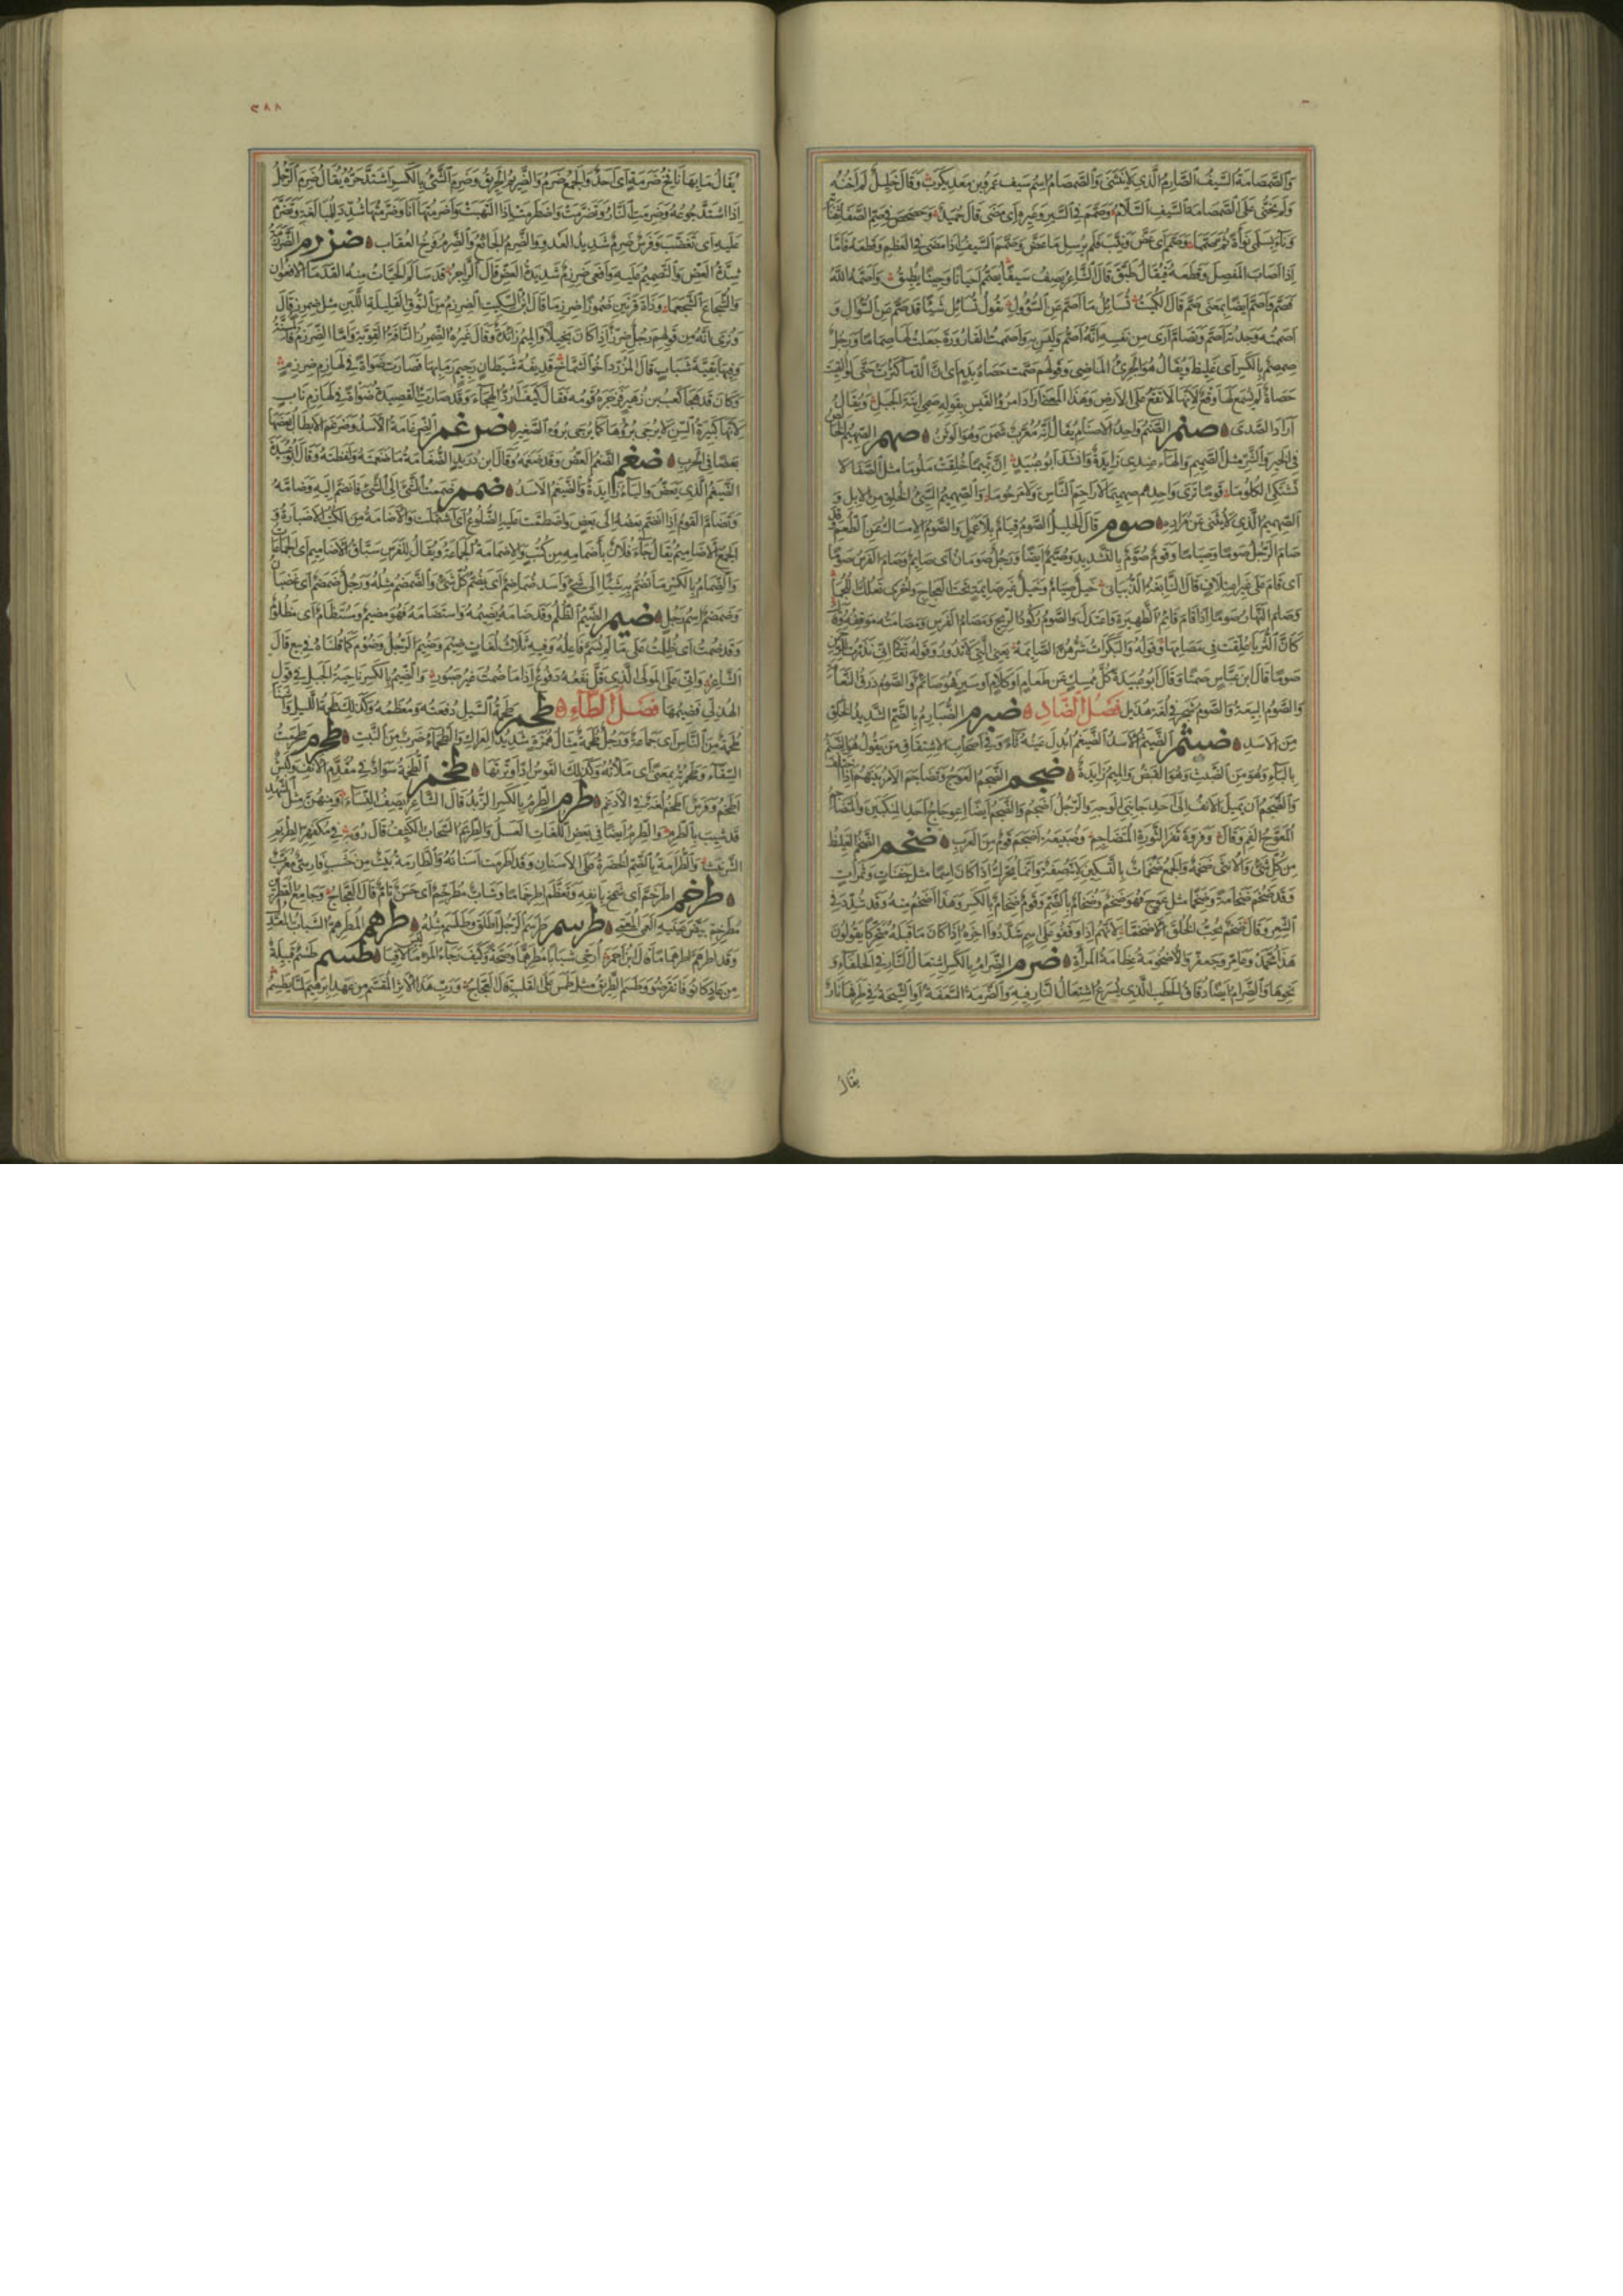 والصمصامة السيف الصارم الذي لا ينثني والصمصام اسم سيف عمرو بن معديكرب وقال خليل لم اخنه
ولم يخني على الصمصامة السيف السلام وصمم في السير وغيره اى مضى قال حميد وحصحص في صم الصفا ثفناته
وناء بسلمى نوأة ثم صمما وصمم اى عض ونيب فلم يرسل ما عض وصمم السيف اذا مضى في العظم وقطعه فاما
اذا اصاب المفصل وقطعه فيقال طبق قال الشاعر يصف سيفا يصمم احيانا وحينا يطبق واصمه الله
فصم واصم ايضا بمعنى صم قال الكميت تسائل ما اصم عن السؤول يقول تسائل شيئا قد صم عن السؤال و
اصممته وجدته اصم وتصام ارى من نفسه انه اصم وليس به واصممت القارورة جعلت لها صماما ورجل
صمصم بالكسر اى غليظ ويقال هو الجرئ الماضي وقولهم صمت حصاة بدم اى ان الدما كثرت حتى لو القيت
حصاة لم يسمع لها وقع لانها لا تقع على الارض وهذا المعنى اراد امرؤ القيس بقوله صمي ابنة الجبل ويقال
اراد الصدى صنم الصنم واحد الاصنام يقال انه معرب شمن وهو الوثن صهم الصهميم الخالص
في الخير والشر مثل الصميم والهاء عندى زايدة وانشد ابو عبيد ان تميما خلقت ملموما مثل الصفا لا
تشتكي الكلوما قوما ترى واحدهم صهميما لا راحم الناس ولا مرحوما والصهميم السيئ الخلق من الابل و
الصهميم الذى لا يثنى عن مراده صوم قال الخليل الصوم قيام بلا عمل والصوم الامساك عن الطعم وقد
صام الرجل صوما وصياما وقوم صوم بالتشديد وصيم ايضا ورجل صومان اى صايم وصام الفرس صوما
اى قام على غير اعتلاف قال النابغة الذبيانى خيل صيام وخيل غير صايمة تحت العجاج واخرى تعلك اللجما
وصام النهار صوما اذا قام قائم الظهيرة واعتدل والصوم ركود الريح ومصام الفرس ومصامته موقفه وقوله
كان الثريا علقت في مصامها وقوله والبكرات شرهن الصايمة يعنى التى لا تدور وقوله تعالى انى نذرت للرحمن
صوما قال ابن عباس صمتا وقال ابو عبيدة كل ممسك عن طعام او كلام او سير فهو صائم والصوم ذرق النعام
والصوم البيعة والصوم شجر في لغة هذيل فصل الضاد ضبرم الضبارم بالضم الشديد الخلق
من الاسد ضبثم الضيثم الاسد
بالباء وهو من الضبث وهو القبض والميم زايدة ضجم الضجم العوج وتضاجم الامر بينهم اذا اختلف
والضجم ان يميل الانف الى احد جانبي الوجه والرجل اضجم والضجم ايضا اعوجاج احد المنكبين والمتضاجم
المعوج الفم وقال وفروة ثفر الثورة المتضاجم وضبيعة اضجم قوم من العرب ضخم الضخم الغليظ
من كل شئ والانثى ضخمة والجمع ضخمات بالتسكين لانه صفة وانما يحرك اذا كان اسما مثل جفنات وتمرات
وقد ضخم ضخامة وضخما مثل عوج فهو ضخم وضخام بالضم وقوم ضخام بالكسر وهذا اضخم منه وقد شدد في
الشعر وقال ضخم يحب الخلق الاضخما لانهم اذا وقفوا على اسم شددوا اخره اذا كان ما قبله متحركا يقولون
هذا محمد وعامر وجعفر والاضخومة عظامة المرأة ضرم الضرام بالكسر اشتعال النار في الحلفاء و
نحوها والضرام ايضا دقاق الحطب الذى يسرع اشتعال النار فيه والضرمة السعفة او الشيحة في طرفها نار
يقال
٢٨٨
يقال ما بها نافخ ضرمة اى احد والجمع ضرم والضريم الحريق وضرم الشئ بالكسر اشتد حره يقال ضرم الرجل
اذا اشتد جوعه وضرمت النار وتضرمت واضطرمت اذا التهبت واضرمتها انا وضرمتها شدد للمبالغة وتضرم
عليه اى تغضب وفرس ضرم شديد العدو والضرم الجائع والضرم فرخ العقاب ضرزم الضرزمة
شدة العض والتصميم عليه وافعى ضرزم شديدة العض قال الراجز قد سالم الحيات منه القدما الافعوان
والشجاع الشجعما وذات قرنين ضموزا ضرزما قال ابن السكيت الضرزم من النوق القليلة اللبن مثل ضمرز قال
ونرى انه من قولهم رجل ضرز اذا كان بخيلا والميم زائدة وقال غيره الضمرز الناقة القوية واما الضرزم فالمسنة
وفيها بقية شباب قال المزرد اخو الشماخ قذيفة شيطان رجيم رمى بها فصارت ضواة في لهازم ضرزم
وكان قد هجا كعب بن زهير فزجره قومه فقال كيف ارد الهجاء وقد صارت القصيدة ضواة في لهازم ناب
لانها كبيرة السن لا يرجى برؤها كما يرجى برؤ الصغير ضرغم الضرغامة الاسد وضرغم الابطال بعضها
بعضا في الحرب ضغم الضغم العض وقد ضغمه وقال ابن دريد الضغامة ما ضغمته ولفظته وقال ابو عبيدة
الضيغم الذي يعض والياء زايدة والضيغم الاسد ضمم ضممت الشئ الى الشئ فانضم اليه وضامه
وتضام القوم اذا انضم بعضهم الى بعض واضطمت عليه الضلوع اى اشتملت والاضمامة من الكتب الاضبارة و
الجمع الاضاميم يقال جاء فلان باضمامة من كتب والاضمامة الجماعة ويقال للفرس سباق الاضاميم اى الجماعات
والضمام بالكسر ما تضم به شيئا الى شئ واسد ضماضم اى يضم كل شئ والضمضم مثله ورجل ضمضم اى غضبان
وضمضم اسم رجل ضيم الضيم الظلم وقد ضامه يضيمه واستضامه فهو مضيم ومستضام اى مظلوم
وقد ضمت اى ظلمت على ما لم يسم فاعله وفيه ثلاث لغات ضيم وضيم الرجل وضوم كما قلناه في بيع قال
الشاعر وانى على المولى الذى قل نفعه دفوع اذا ما ضمت غير صبور والضيم بالكسر ناحية الجبل في قول
الهذلى فضيمها فصل الطاء طحم طحمة السيل دفعته ومعظمه وكذلك طحمة الليل واتتنا
طحمة من الناس اى جماعة ورجل طحمة مثال همزة شديد العراك والطحماء ضرب من النبت طحرم طحرمت
السقاء وطحمرته بمعنى اى ملأته وكذلك القوس اذا وترتها طخم الطخمة سواد في مقدم الانف وكبش
اطخم وفرس اطخم لغة في الادغم طرم الطرم بالكسر الزبد قال الشاعر يصف النساء ومنهن مثل الشهد
قد شيب بالطرم والطرم ايضا في بعض اللغات العسل والطريم السحاب الكثيف قال رؤبة في مكفهر الطريم
الشرنبث والطرامة بالضم الخضرة على الاسنان وقد اطرمت اسنانه والطارمة بيت من خشب فارسي معرب
طرخم اطرخم اى شمخ بانفه وتعظم اطرخماما وشاب مطرخم اى حسن تام قال العجاج وجامع القطرين
مطرخم بيض عينيه العمى المعمى طرسم طرسم الرجل اطرق وطلسم مثله طرهم المطرهم الشباب المعتدل
وقد اطرهم اطرهماما قال ابن احمر ارجى شبابا مطرهما وصحة وكيف رجاء المرء ما ليس لاقيا طسم طسم قبيلة
من عاد كانوا فانقرضوا وطسم الطريق مثل طمس على القلب قال العجاج ورب هذا الاثر المقسم من عهد ابرهيم لما يطسم